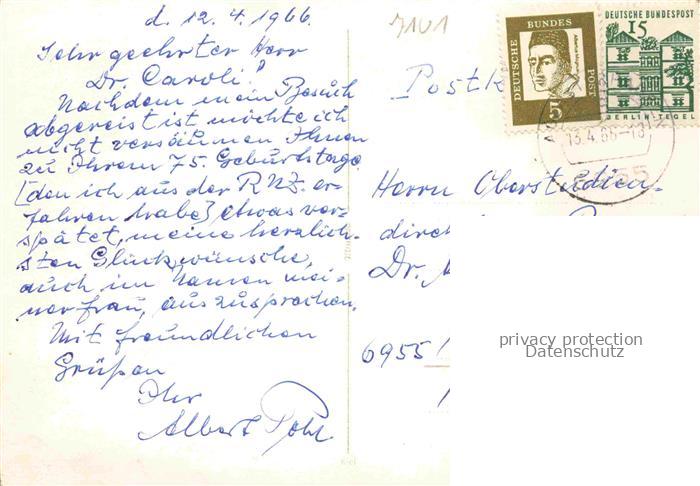 d. 12.4.1966.
7101
Sehr geehrter Herr
Dr. Caroli!
Nachdem mein Besuch
abgereist ist möchte ich
nicht versäumen Ihnen
zu Ihrem 75. Geburtstage
[den ich aus der RNZ. er-
fahren habe] etwas ver-
spätet, meine herzlich-
sten Glückwünsche,
auch im Namen mei-
ner Frau, auszusprechen.
Mit freundlichen
Grüßen
Ihr
Albert Pohl.
DEUTSCHE BUNDESPOST
5
DEUTSCHE BUNDESPOST
15
BERLIN-TEGEL
13.4.66-18
Postk
Herrn Oberstudien-
direk
Dr.
6955
privacy protection
Datenschutz